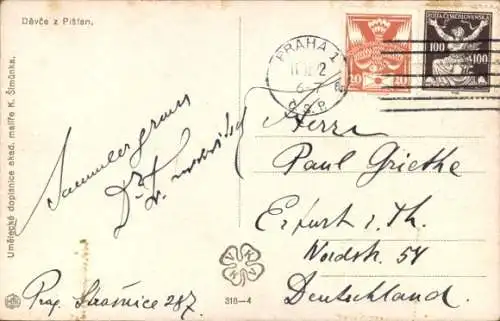 Děvče z Pišťan.
Umělecké dopisnice akad. malíře K. Šimůnka.
Sammlergruss
Dr.
Prag. Strašnice 287.
PRAHA 1
6-7
Č.S.P.
20 20
POŠTA ČESKOSLOVENSKÁ
100 100
Herrn
Paul Griethe
Erfurt i. Th.
Nordstr. 54
Deutschland.
318-4